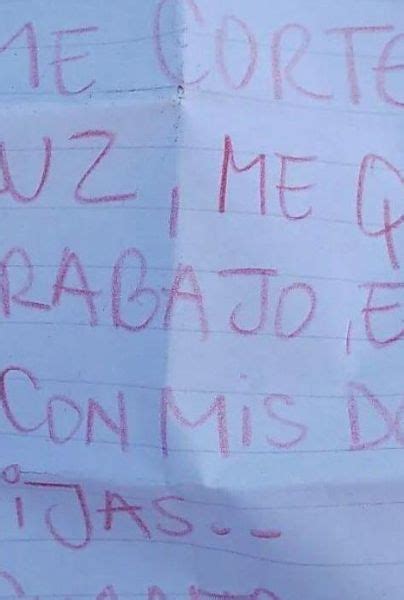 ME CORTE
UZ, ME Q
RABAJO, E
CON MIS DO
IJAS..